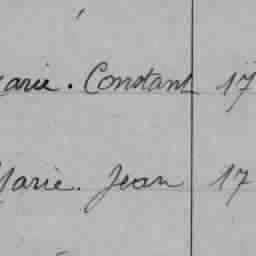 Marie. Constant 17
Marie. Jean 17